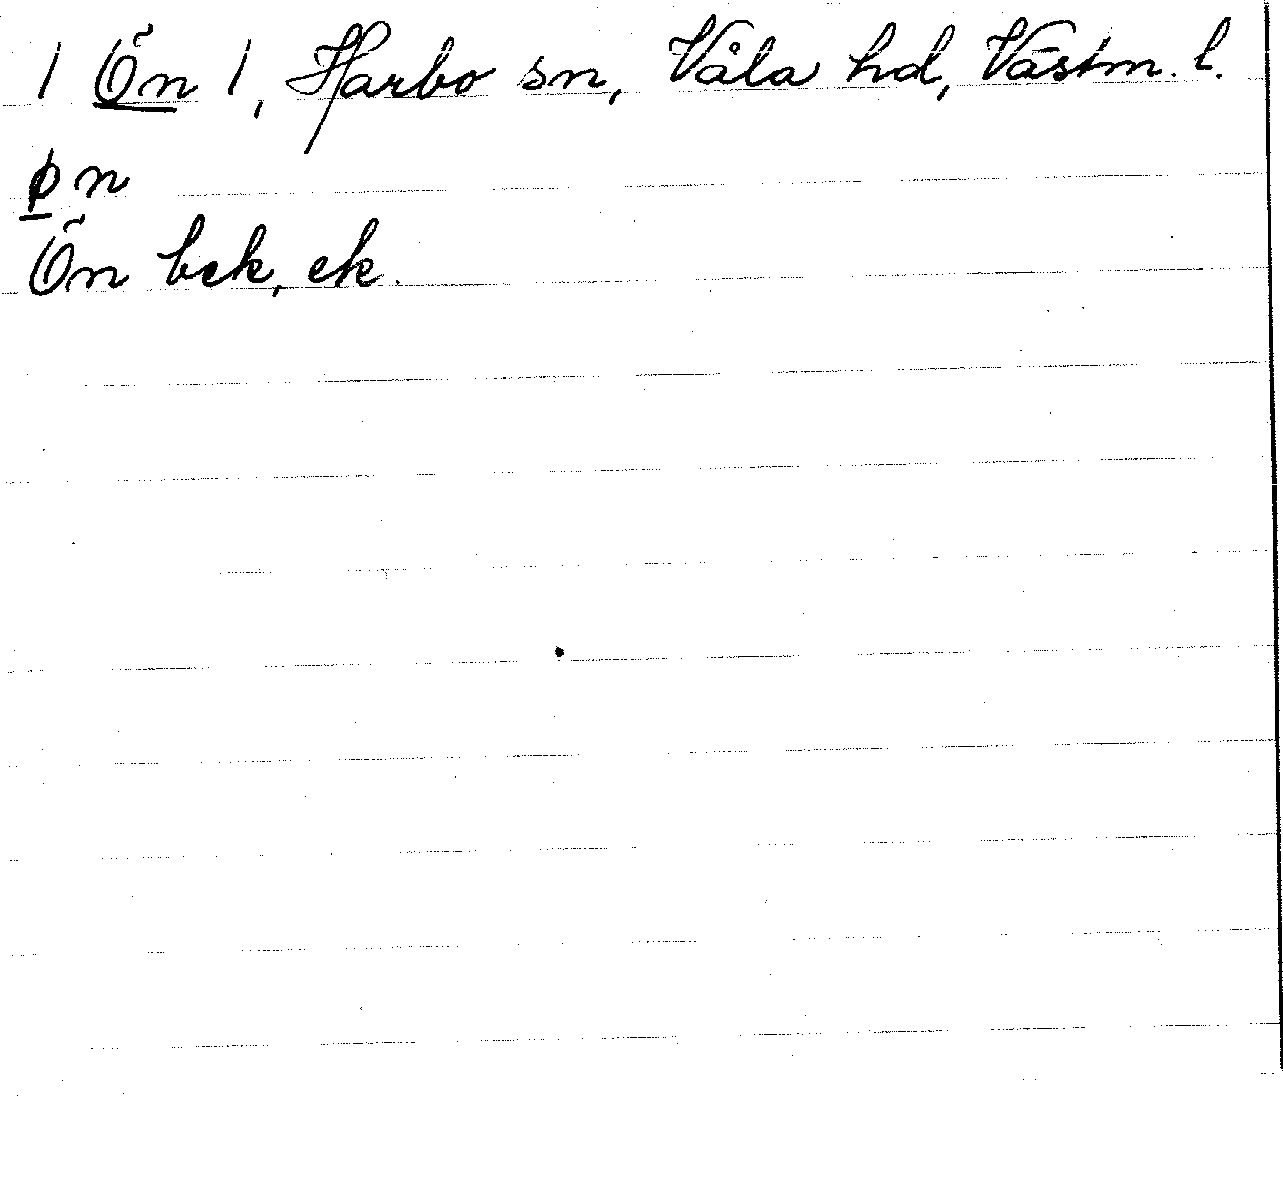 / Ön /, Harbo sn, Våla hd, Västm. l.
ø n
Ön bek, ek.